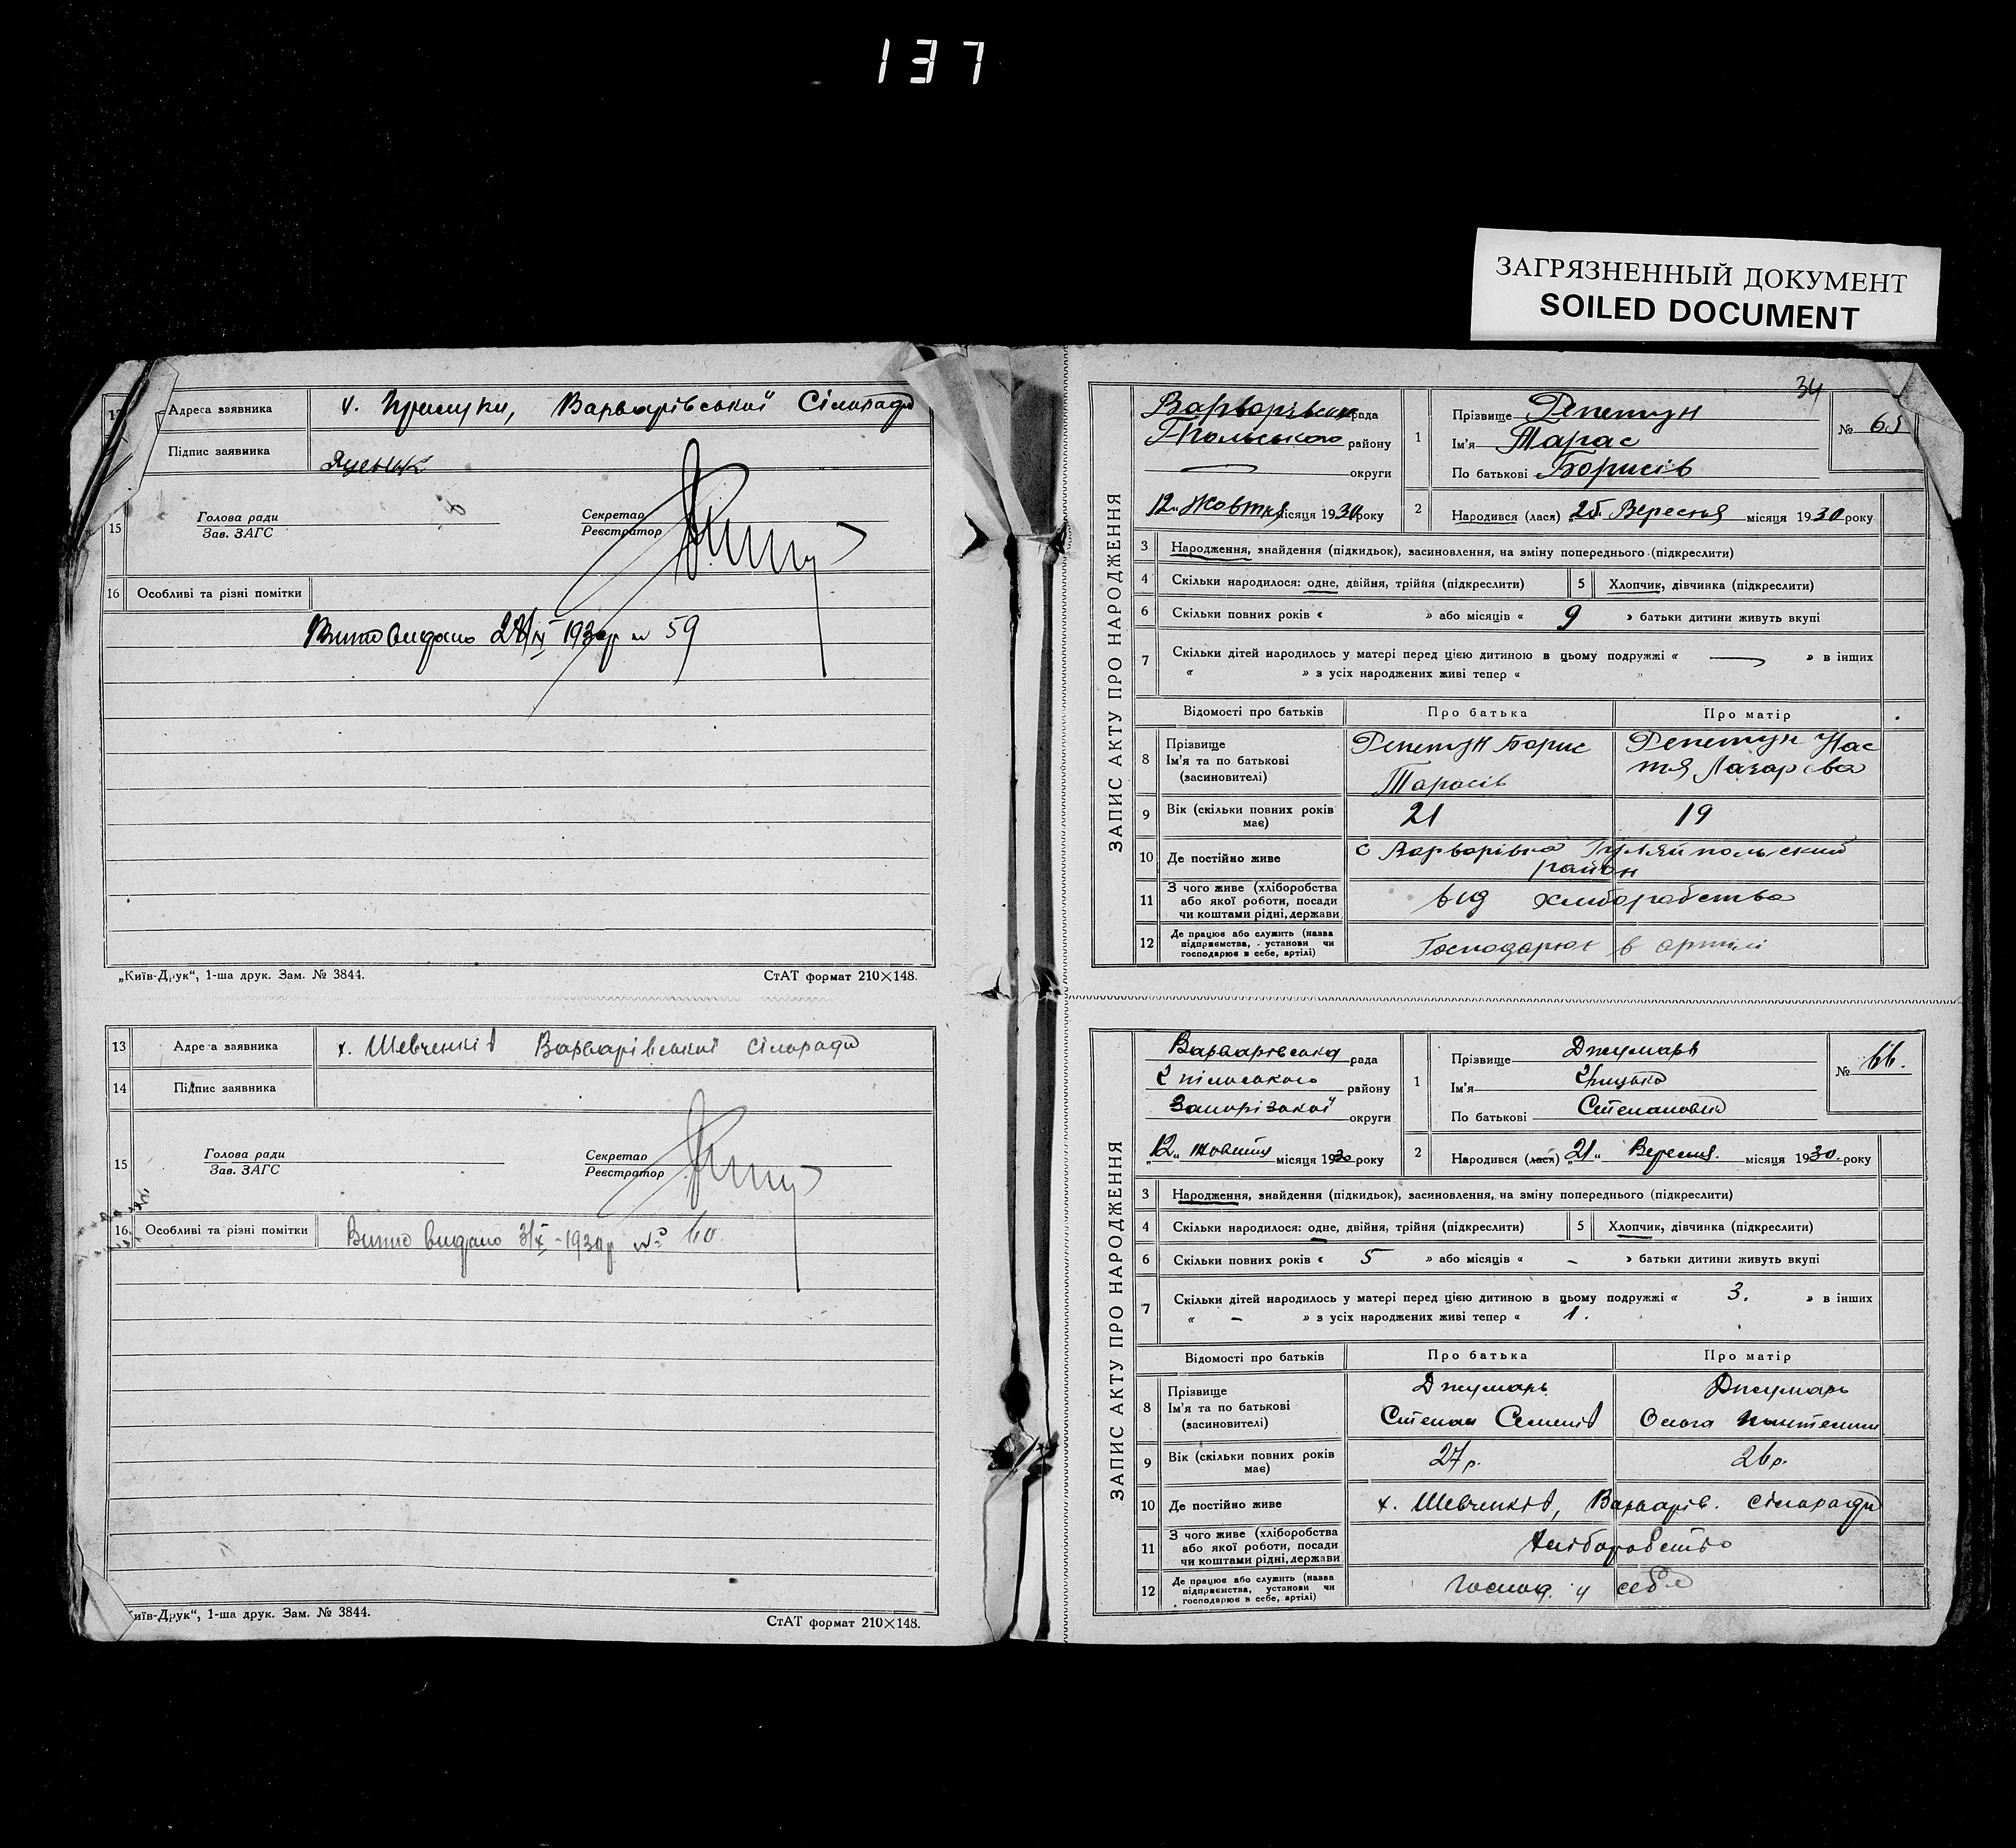 137
ЗАГРЯЗНЕННЫЙ ДОКУМЕНТ
SOILED DOCUMENT
Адреса заявника Варварівської Сільради
Підпис заявника
15 Голова ради Секретар
Зав. ЗАГС Реєстратор
16 Особливі та різні помітки
Видано 1930р № 59
„Київ-Друк“, 1-ша друк. Зам. № 3844. СтАТ формат 210×148.
13 Адреса заявника х. Шевченків Варварівської сільради
14 Підпис заявника
15 Голова ради Секретар
Зав. ЗАГС Реєстратор
16 Особливі та різні помітки видано 3/X-1930р. № 60.
иїв-Друк“, 1-ша друк. Зам. № 3844. СтАТ формат 210×148.
34
ЗАПИС АКТУ ПРО НАРОДЖЕННЯ
Варварівськ рада
Г-Польського району
округи
12 Жовтня місяця 1930 року
1 Прізвище Репетун
Ім'я Тарас
По батькові Борисів
№ 65
2 Народився (лася) „25. Вересня місяця 1930 року
3 Народження, знайдення (підкидьок), засиновлення, на зміну попереднього (підкреслити)
4 Скільки народилося: одне, двійня, трійня (підкреслити) 5 Хлопчик, дівчинка (підкреслити)
6 Скільки повних років « » або місяців « 9 » батьки дитини живуть вкупі
7 Скільки дітей народилось у матері перед цією дитиною в цьому подружжі « — » в інших
« » з усіх народжених живі тепер « »
Відомості про батьків Про батька Про матір
8 Прізвище Ім'я та по батькові (засиновителі) Репетун Борис Тарасів Репетун Настя Лазарєва
9 Вік (скільки повних років має) 21 19
10 Де постійно живе с Варварівка Гуляйпольский район
11 З чого живе (хліборобства або якої роботи, посади чи коштами рідні, держави від хліборобства
12 Де працює або служить (назва підприємства, установи чи господарює в себе, артілі) Господарює в артілі
ЗАПИС АКТУ ПРО НАРОДЖЕННЯ
Варварівська рада
району
Запорізької округи
„12„ жовтня місяця 1930 року
1 Прізвище Джумарь
Ім'я Грицько
По батькові Степанович
№ 66.
2 Народився (лася) „21“ Вересня. місяця 1930. року
3 Народження, знайдення (підкидьок), засиновлення, на зміну попереднього (підкреслити)
4 Скільки народилося: одне, двійня, трійня (підкреслити) 5 Хлопчик, дівчинка (підкреслити)
6 Скільки повних років « 5 » або місяців « - » батьки дитини живуть вкупі
7 Скільки дітей народилось у матері перед цією дитиною в цьому подружжі « 3. » в інших
« - » з усіх народжених живі тепер « 1.
Відомості про батьків Про батька Про матір
8 Прізвище Ім'я та по батькові (засиновителі) Джумарь Степан Семенів Джумарь Ольга
9 Вік (скільки повних років має) 27 р. 26 р.
10 Де постійно живе х. Шевченків, Варварів. сільради
11 З чого живе (хліборобства або якої роботи, посади чи коштами рідні, держави Хліборобство
12 Де працює або служить (назва підприємства, установи чи господарює в себе, артілі) господ. у себе